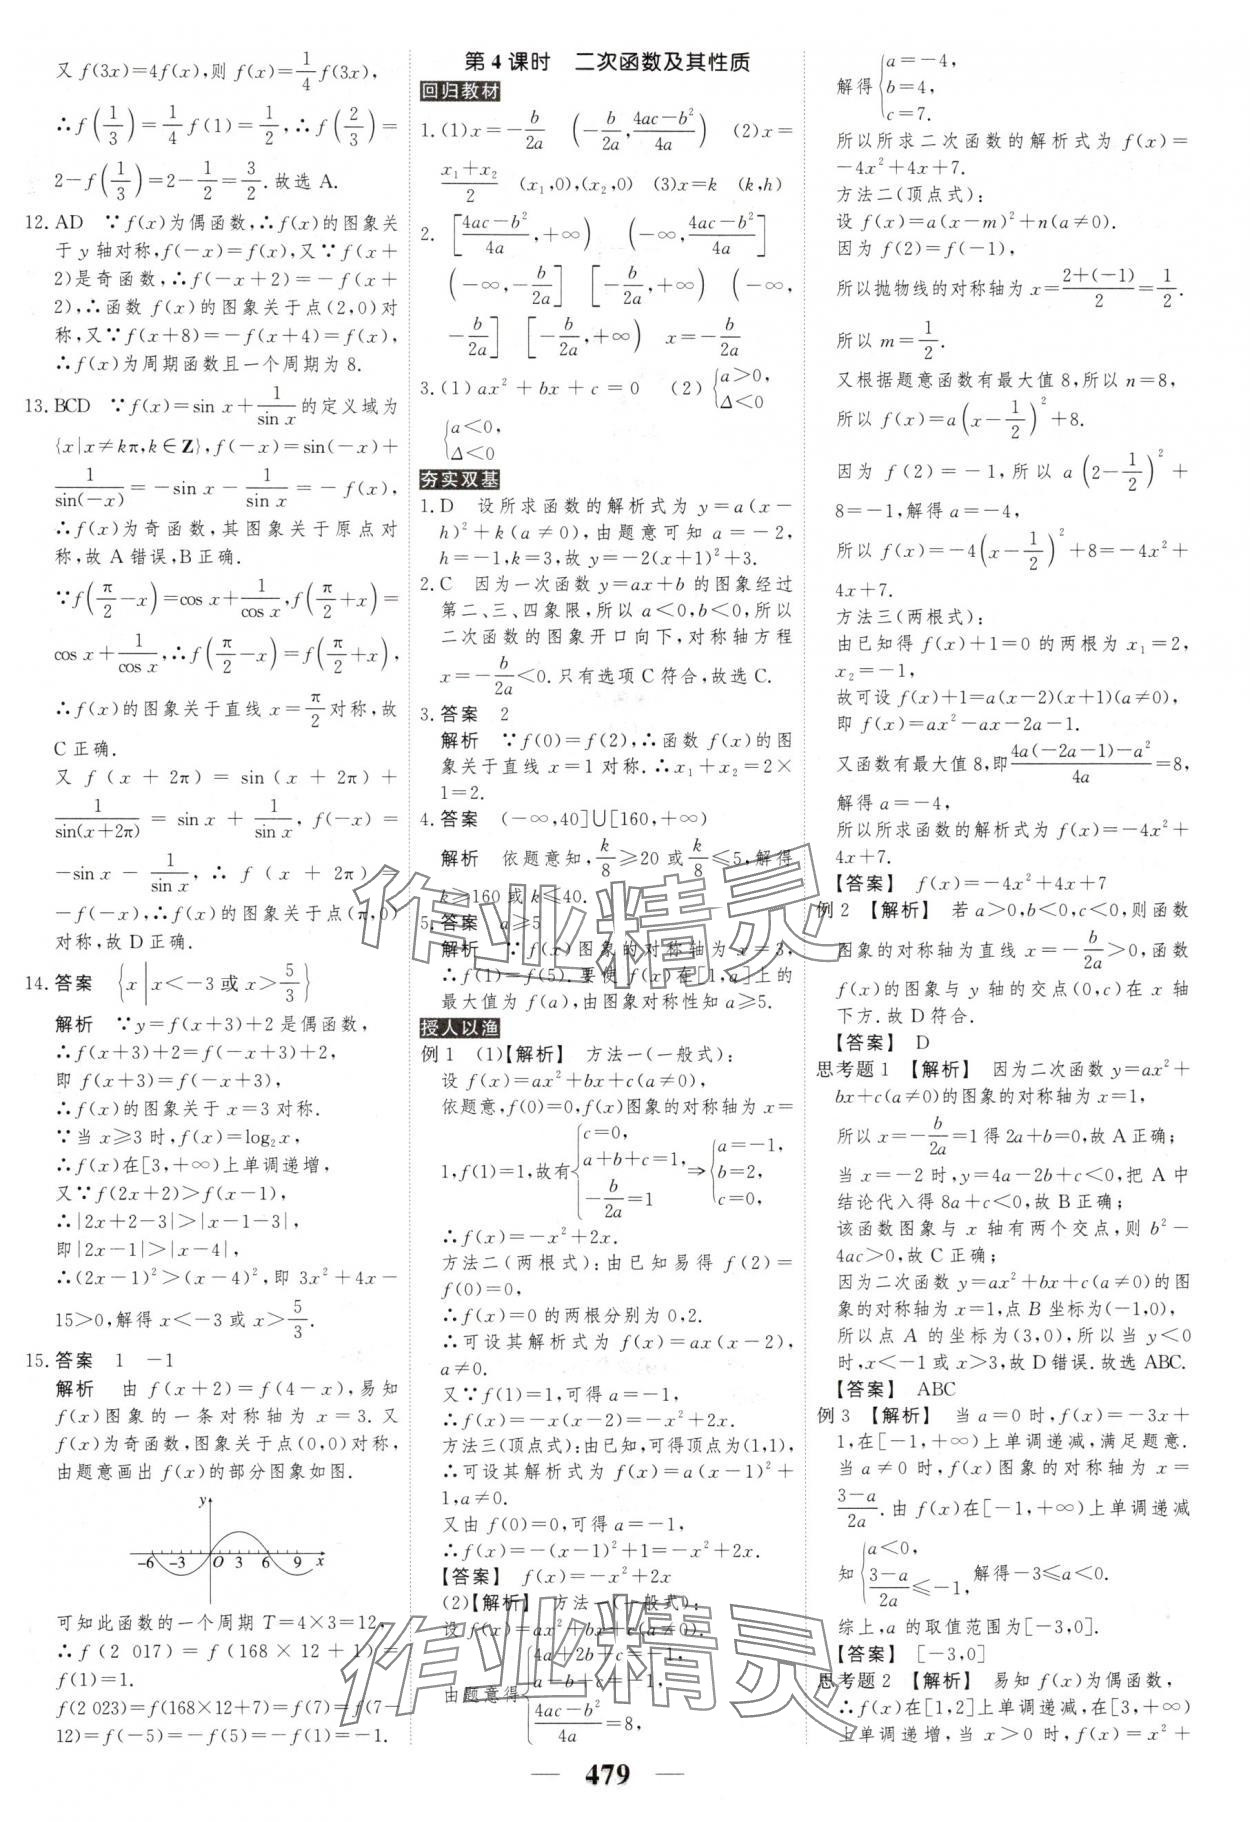 又 f(3x)=4f(x),则 f(x)=1/4 f(3x),
∴f(1/3)=1/4 f(1)=1/2,∴f(2/3)=
2-f(1/3)=2-1/2=3/2.故选 A.
12. AD ∵f(x)为偶函数,∴f(x)的图象关
于 y 轴对称,f(-x)=f(x),又∵f(x+
2)是奇函数,∴f(-x+2)=-f(x+
2),∴函数 f(x)的图象关于点(2,0)对
称,又∵f(x+8)=-f(x+4)=f(x),
∴f(x)为周期函数且一个周期为 8.
13. BCD ∵f(x)=sin x+1/sin x 的定义域为
{x|x≠kπ,k∈Z},f(-x)=sin(-x)+
1/sin(-x)=-sin x-1/sin x=-f(x),
∴f(x)为奇函数,其图象关于原点对
称,故 A 错误,B 正确.
∵f(π/2-x)=cos x+1/cos x,f(π/2+x)=
cos x+1/cos x,∴f(π/2-x)=f(π/2+x),
∴f(x)的图象关于直线 x=π/2对称,故
C 正确.
又 f(x+2π)=sin(x+2π)+
1/sin(x+2π)=sin x+1/sin x,f(-x)=
-sin x-1/sin x,∴f(x+2π)=
-f(-x),∴f(x)的图象关于点(π,0)
对称,故 D 正确.
14. 答案 {x|x<-3 或 x>5/3}
解析 ∵y=f(x+3)+2 是偶函数,
∴f(x+3)+2=f(-x+3)+2,
即 f(x+3)=f(-x+3),
∴f(x)的图象关于 x=3 对称.
∵当 x≥3 时,f(x)=log₂x,
∴f(x)在[3,+∞)上单调递增,
又∵f(2x+2)>f(x-1),
∴|2x+2-3|>|x-1-3|,
即|2x-1|>|x-4|,
∴(2x-1)²>(x-4)²,即 3x²+4x-
15>0,解得 x<-3 或 x>5/3.
15. 答案 1 -1
解析 由 f(x+2)=f(4-x),易知
f(x)图象的一条对称轴为 x=3.又
f(x)为奇函数,图象关于点(0,0)对称,
由题意画出 f(x)的部分图象如图.
y
-6 -3 O 3 6 9 x
可知此函数的一个周期 T=4×3=12,
∴f(2 017)=f(168×12+1)=
f(1)=1.
f(2 023)=f(168×12+7)=f(7)=f(7-
12)=f(-5)=-f(5)=-f(1)=-1.
第 4 课时 二次函数及其性质
回归教材
1. (1)x=-b/2a (-b/2a,(4ac-b²)/4a) (2)x=
(x₁+x₂)/2 (x₁,0),(x₂,0) (3)x=k (k,h)
2. [(4ac-b²)/4a,+∞) (-∞,(4ac-b²)/4a]
(-∞,-b/2a] [-b/2a,+∞) (-∞,
-b/2a] [-b/2a,+∞) x=-b/2a
3. (1) ax²+bx+c=0 (2) {a>0, Δ<0
{a<0, Δ<0
夯实双基
1. D 设所求函数的解析式为 y=a(x-
h)²+k(a≠0),由题意可知 a=-2,
h=-1,k=3,故 y=-2(x+1)²+3.
2. C 因为一次函数 y=ax+b 的图象经过
第二、三、四象限,所以 a<0,b<0,所以
二次函数的图象开口向下,对称轴方程
x=-b/2a<0.只有选项 C 符合,故选 C.
3. 答案 2
解析 ∵f(0)=f(2),∴函数 f(x)的图
象关于直线 x=1 对称.∴x₁+x₂=2×
1=2.
4. 答案 (-∞,40]∪[160,+∞)
解析 依题意知,k/8≥20 或k/8≤5,解得
k≥160 或 k≤40.
5. 答案 a≥5
解析 ∵f(x)图象的对称轴为 x=3,
∴f(1)=f(5).要使 f(x)在[1,a]上的
最大值为 f(a),由图象对称性知 a≥5.
授人以渔
例 1 (1)【解析】 方法一(一般式):
设 f(x)=ax²+bx+c(a≠0),
依题意,f(0)=0,f(x)图象的对称轴为 x=
1,f(1)=1,故有{c=0, a+b+c=1, -b/2a=1 ⇒{a=-1, b=2, c=0,
∴f(x)=-x²+2x.
方法二(两根式):由已知易得 f(2)=
f(0)=0,
∴f(x)=0 的两根分别为 0,2.
∴可设其解析式为 f(x)=ax(x-2),
a≠0.
又∵f(1)=1,可得 a=-1,
∴f(x)=-x(x-2)=-x²+2x.
方法三(顶点式):由已知,可得顶点为(1,1),
∴可设其解析式为 f(x)=a(x-1)²+
1,a≠0.
又由 f(0)=0,可得 a=-1,
∴f(x)=-(x-1)²+1=-x²+2x.
【答案】 f(x)=-x²+2x
(2)【解析】 方法一(一般式):
设 f(x)=ax²+bx+c(a≠0).
由题意得{4a+2b+c=-1, a-b+c=-1, (4ac-b²)/4a=8,
解得{a=-4, b=4, c=7.
所以所求二次函数的解析式为 f(x)=
-4x²+4x+7.
方法二(顶点式):
设 f(x)=a(x-m)²+n(a≠0).
因为 f(2)=f(-1),
所以抛物线的对称轴为 x=(2+(-1))/2=1/2.
所以 m=1/2.
又根据题意函数有最大值 8,所以 n=8,
所以 f(x)=a(x-1/2)²+8.
因为 f(2)=-1,所以 a(2-1/2)²+
8=-1,解得 a=-4,
所以 f(x)=-4(x-1/2)²+8=-4x²+
4x+7.
方法三(两根式):
由已知得 f(x)+1=0 的两根为 x₁=2,
x₂=-1,
故可设 f(x)+1=a(x-2)(x+1)(a≠0),
即 f(x)=ax²-ax-2a-1.
又函数有最大值 8,即(4a(-2a-1)-a²)/4a=8,
解得 a=-4,
所以所求函数的解析式为 f(x)=-4x²+
4x+7.
【答案】 f(x)=-4x²+4x+7
例 2 【解析】 若 a>0,b<0,c<0,则函数
图象的对称轴为直线 x=-b/2a>0,函数
f(x)的图象与 y 轴的交点(0,c)在 x 轴
下方.故 D 符合.
【答案】 D
思考题 1 【解析】 因为二次函数 y=ax²+
bx+c(a≠0)的图象的对称轴为 x=1,
所以 x=-b/2a=1 得 2a+b=0,故 A 正确;
当 x=-2 时,y=4a-2b+c<0,把 A 中
结论代入得 8a+c<0,故 B 正确;
该函数图象与 x 轴有两个交点,则 b²-
4ac>0,故 C 正确;
因为二次函数 y=ax²+bx+c(a≠0)的图
象的对称轴为 x=1,点 B 坐标为(-1,0),
所以点 A 的坐标为(3,0),所以当 y<0
时,x<-1 或 x>3,故 D 错误.故选 ABC.
【答案】 ABC
例 3 【解析】 当 a=0 时,f(x)=-3x+
1,在[-1,+∞)上单调递减,满足题意.
当 a≠0 时,f(x)图象的对称轴为 x=
(3-a)/2a.由 f(x)在[-1,+∞)上单调递减
知{a<0, (3-a)/2a≤-1, 解得-3≤a<0.
综上,a 的取值范围为[-3,0].
【答案】 [-3,0]
思考题 2 【解析】 易知 f(x)为偶函数,
∴f(x)在[1,2]上单调递减,在[3,+∞)
上单调递增,当 x>0 时,f(x)=x²+
479
作业精灵
作业精灵